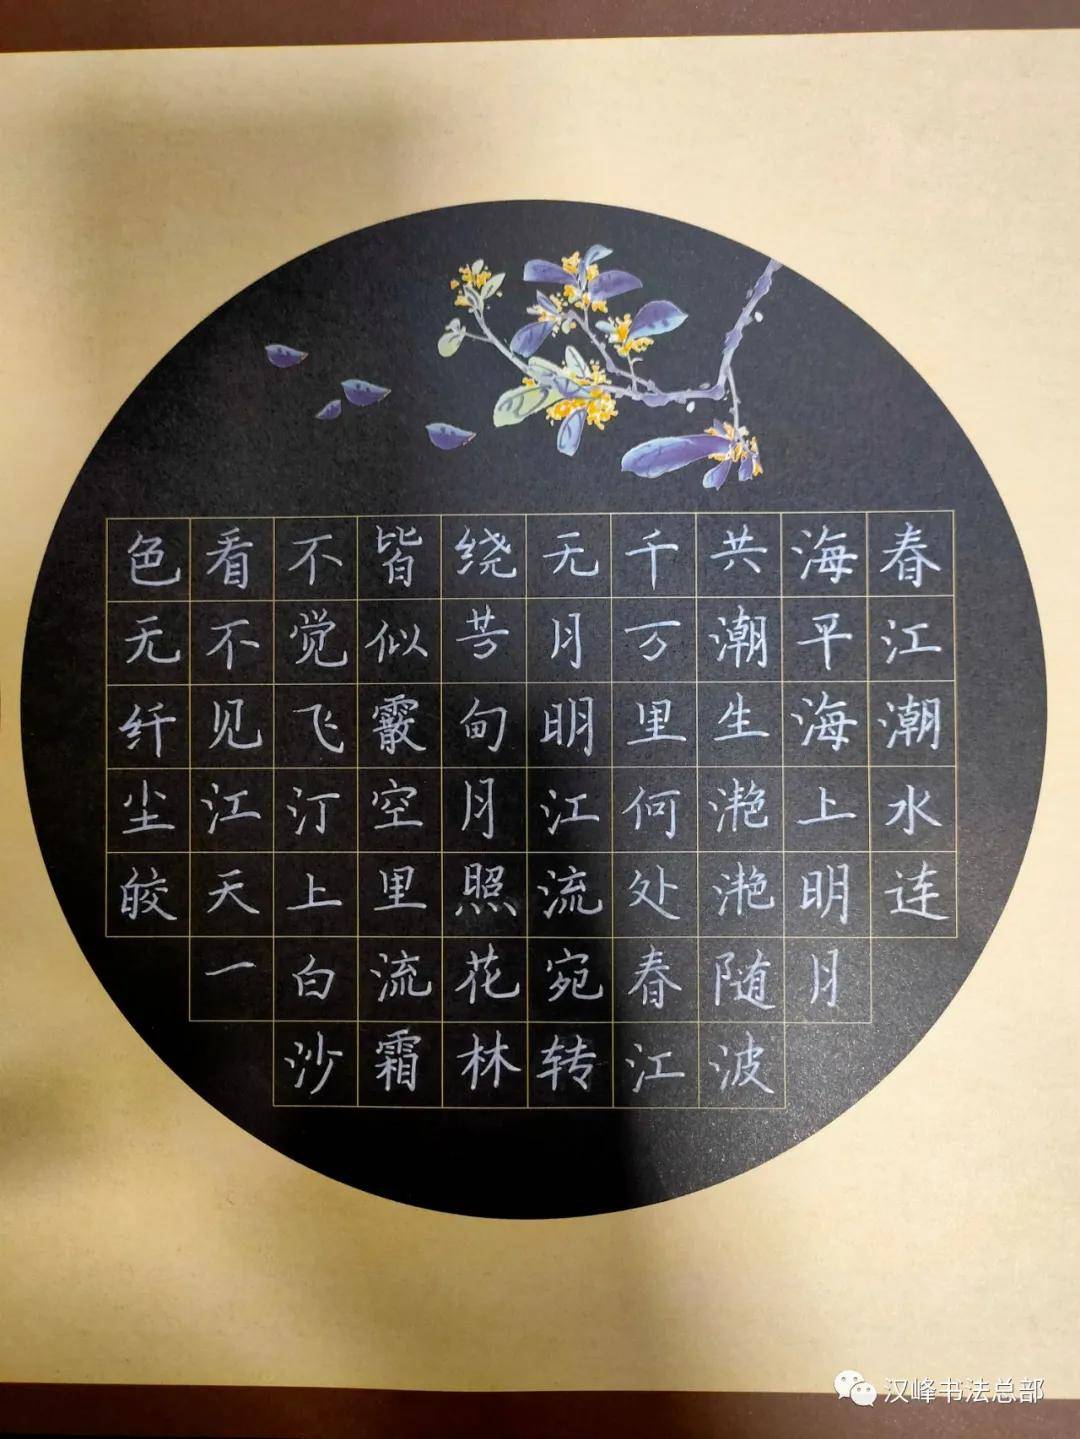 春江潮水连
海平海上明月
共潮生滟滟随波
千万里何处春江
无月明江流宛转
绕芳甸月照花林
皆似霰空里流霜
不觉飞汀上白沙
看不见江天一
色无纤尘皎
汉峰书法总部